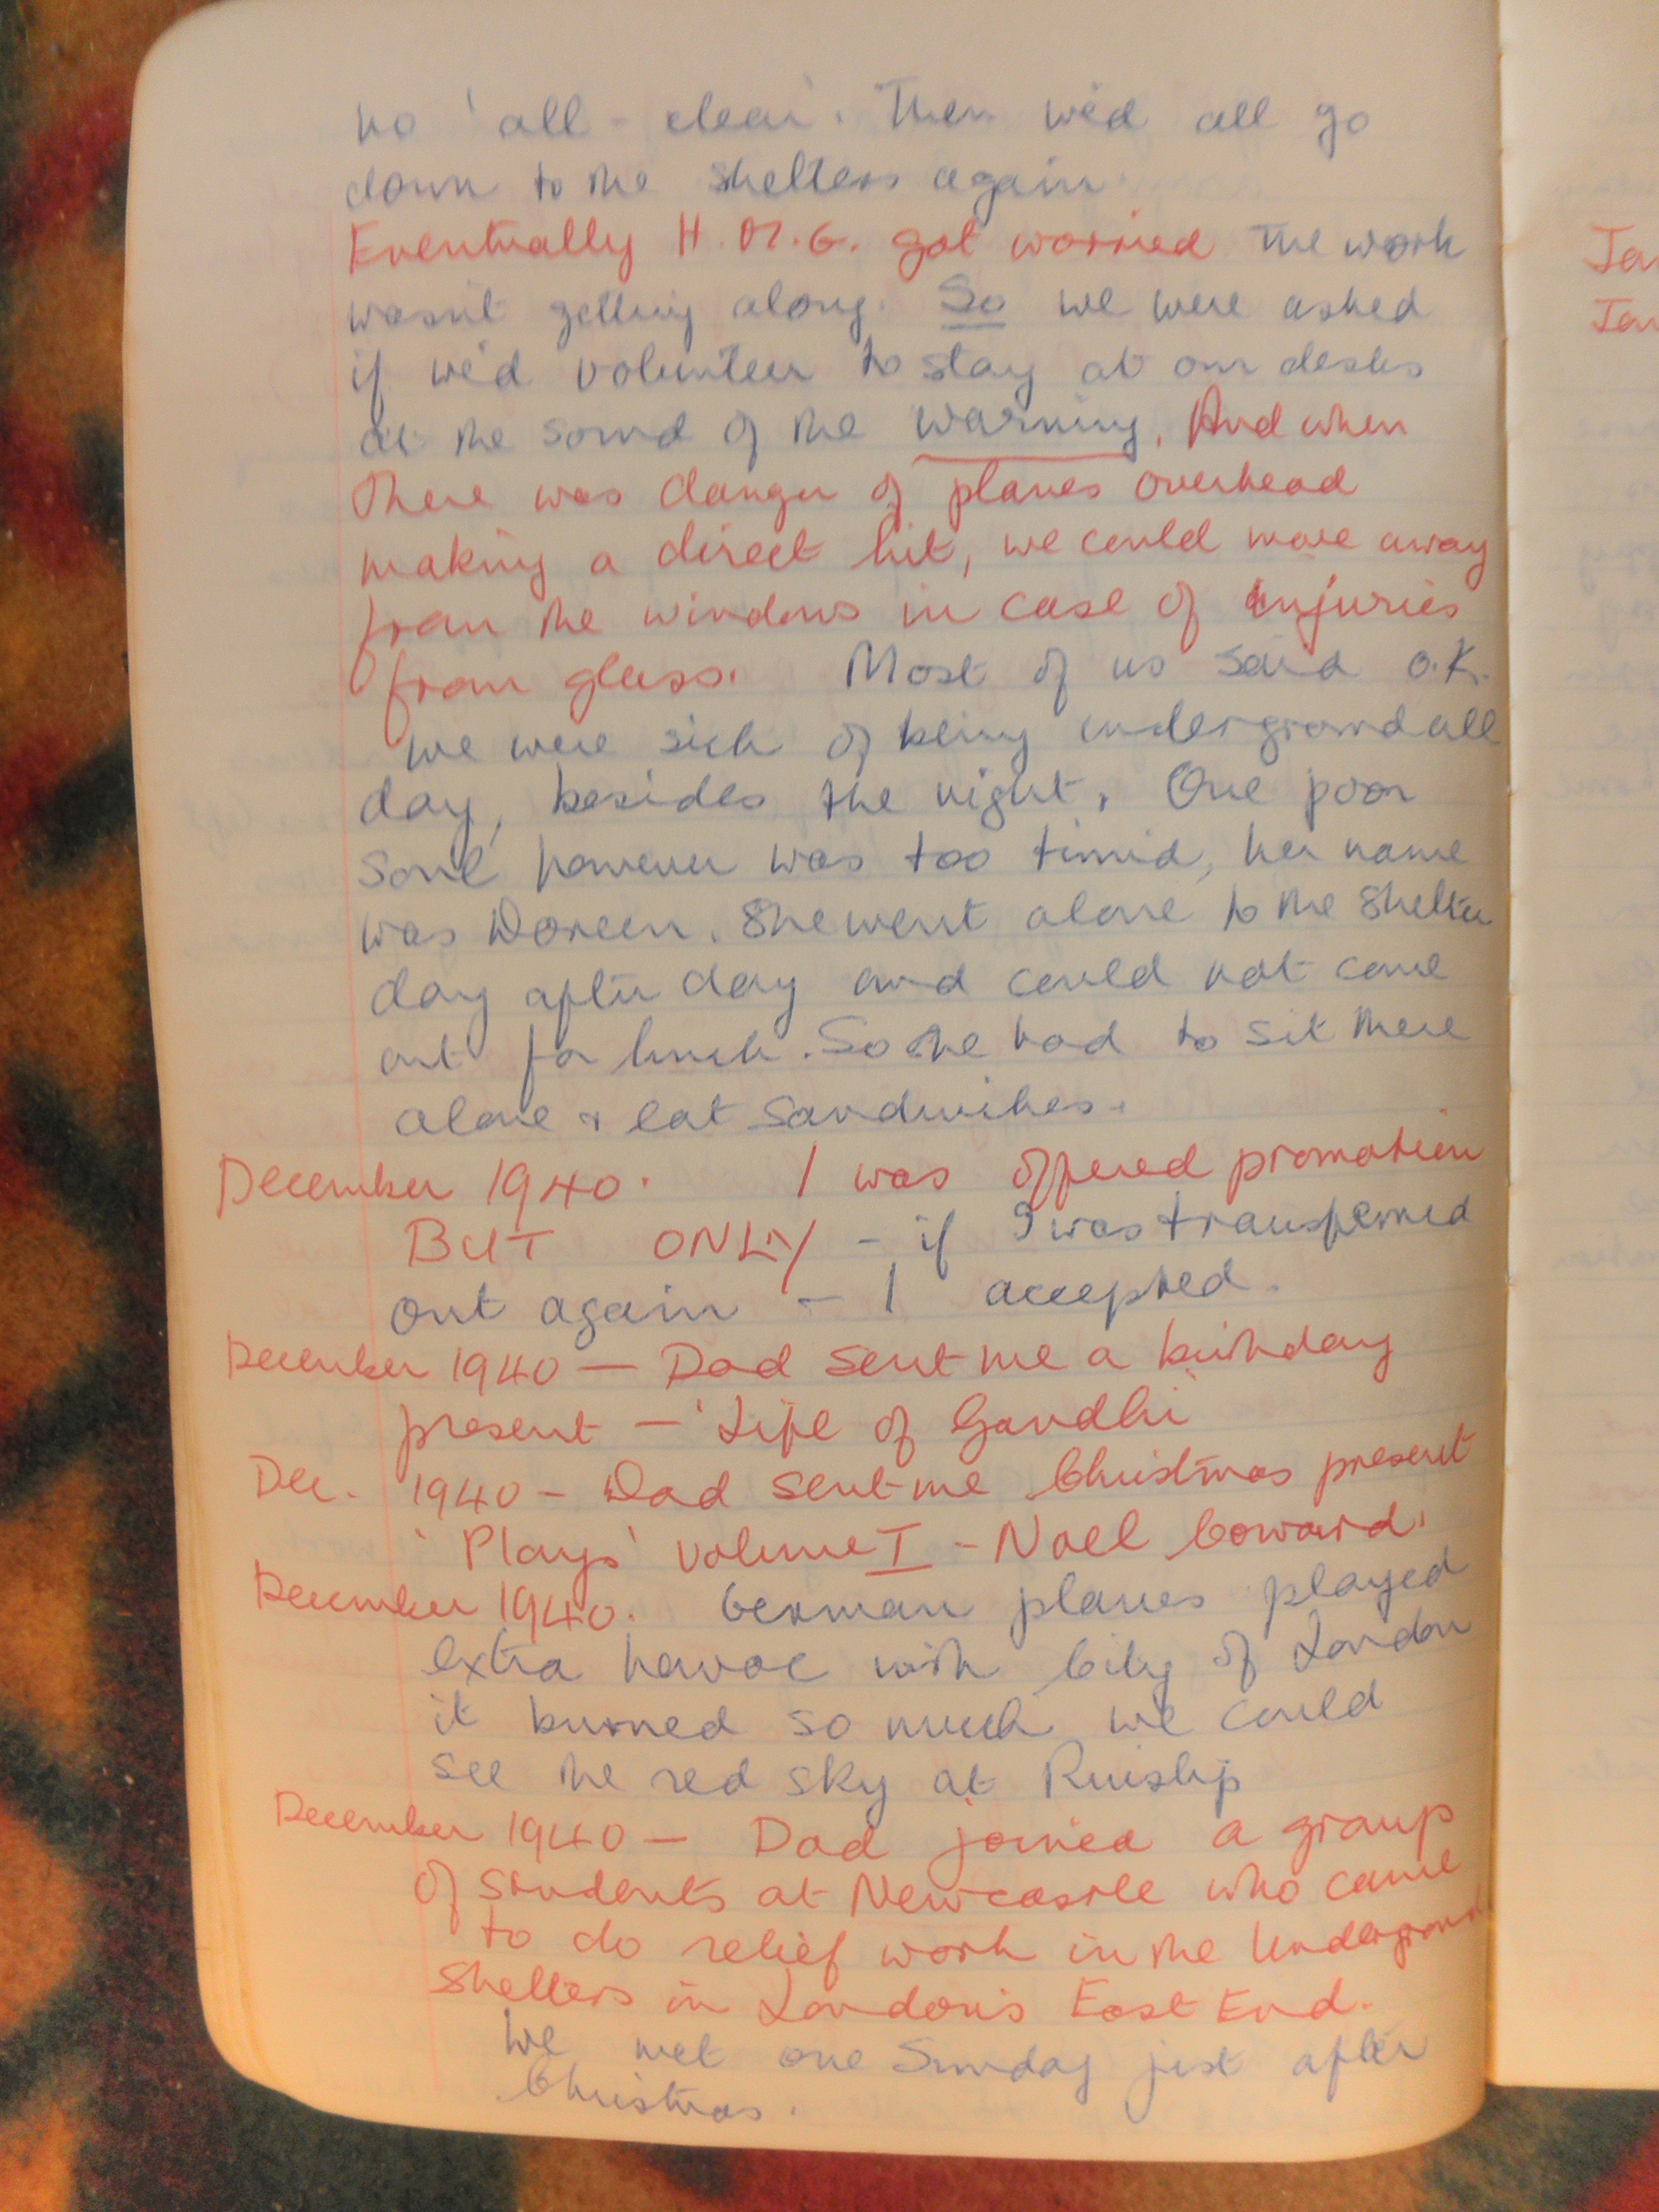 no 'all - clear'. Then we'd all go
down to the shelters again.
Eventually H.M.G. got worried the work
wasn't getting along. So we were asked
if we'd volunteer to stay at our desks
at the sound of the warning. And when
there was danger of planes overhead
making a direct hit, we could move away
from the windows in case of injuries
from glass. Most of us said O.K.
We were sick of being underground all
day, besides the night. One poor
soul however was too timid, her name
was Doreen. She went alone to the shelter
day after day and could not come
out for lunch. So she had to sit there
alone & eat sandwiches.
December 1940. I was offered promotion
BUT ONLY - if I was transferred
out again - I accepted.
December 1940 — Dad sent me a birthday
present — 'Life of Gandhi'
Dec. 1940 - Dad sent me Christmas present
'Plays' volume I - Noel Coward.
December 1940. German planes played
extra havoc with City of London
it burned so much we could
see the red sky at Ruislip
December 1940 — Dad joined a group
of students at Newcastle who came
to do relief work in the Underground
shelters in London's East End.
We met one Sunday just after
Christmas.